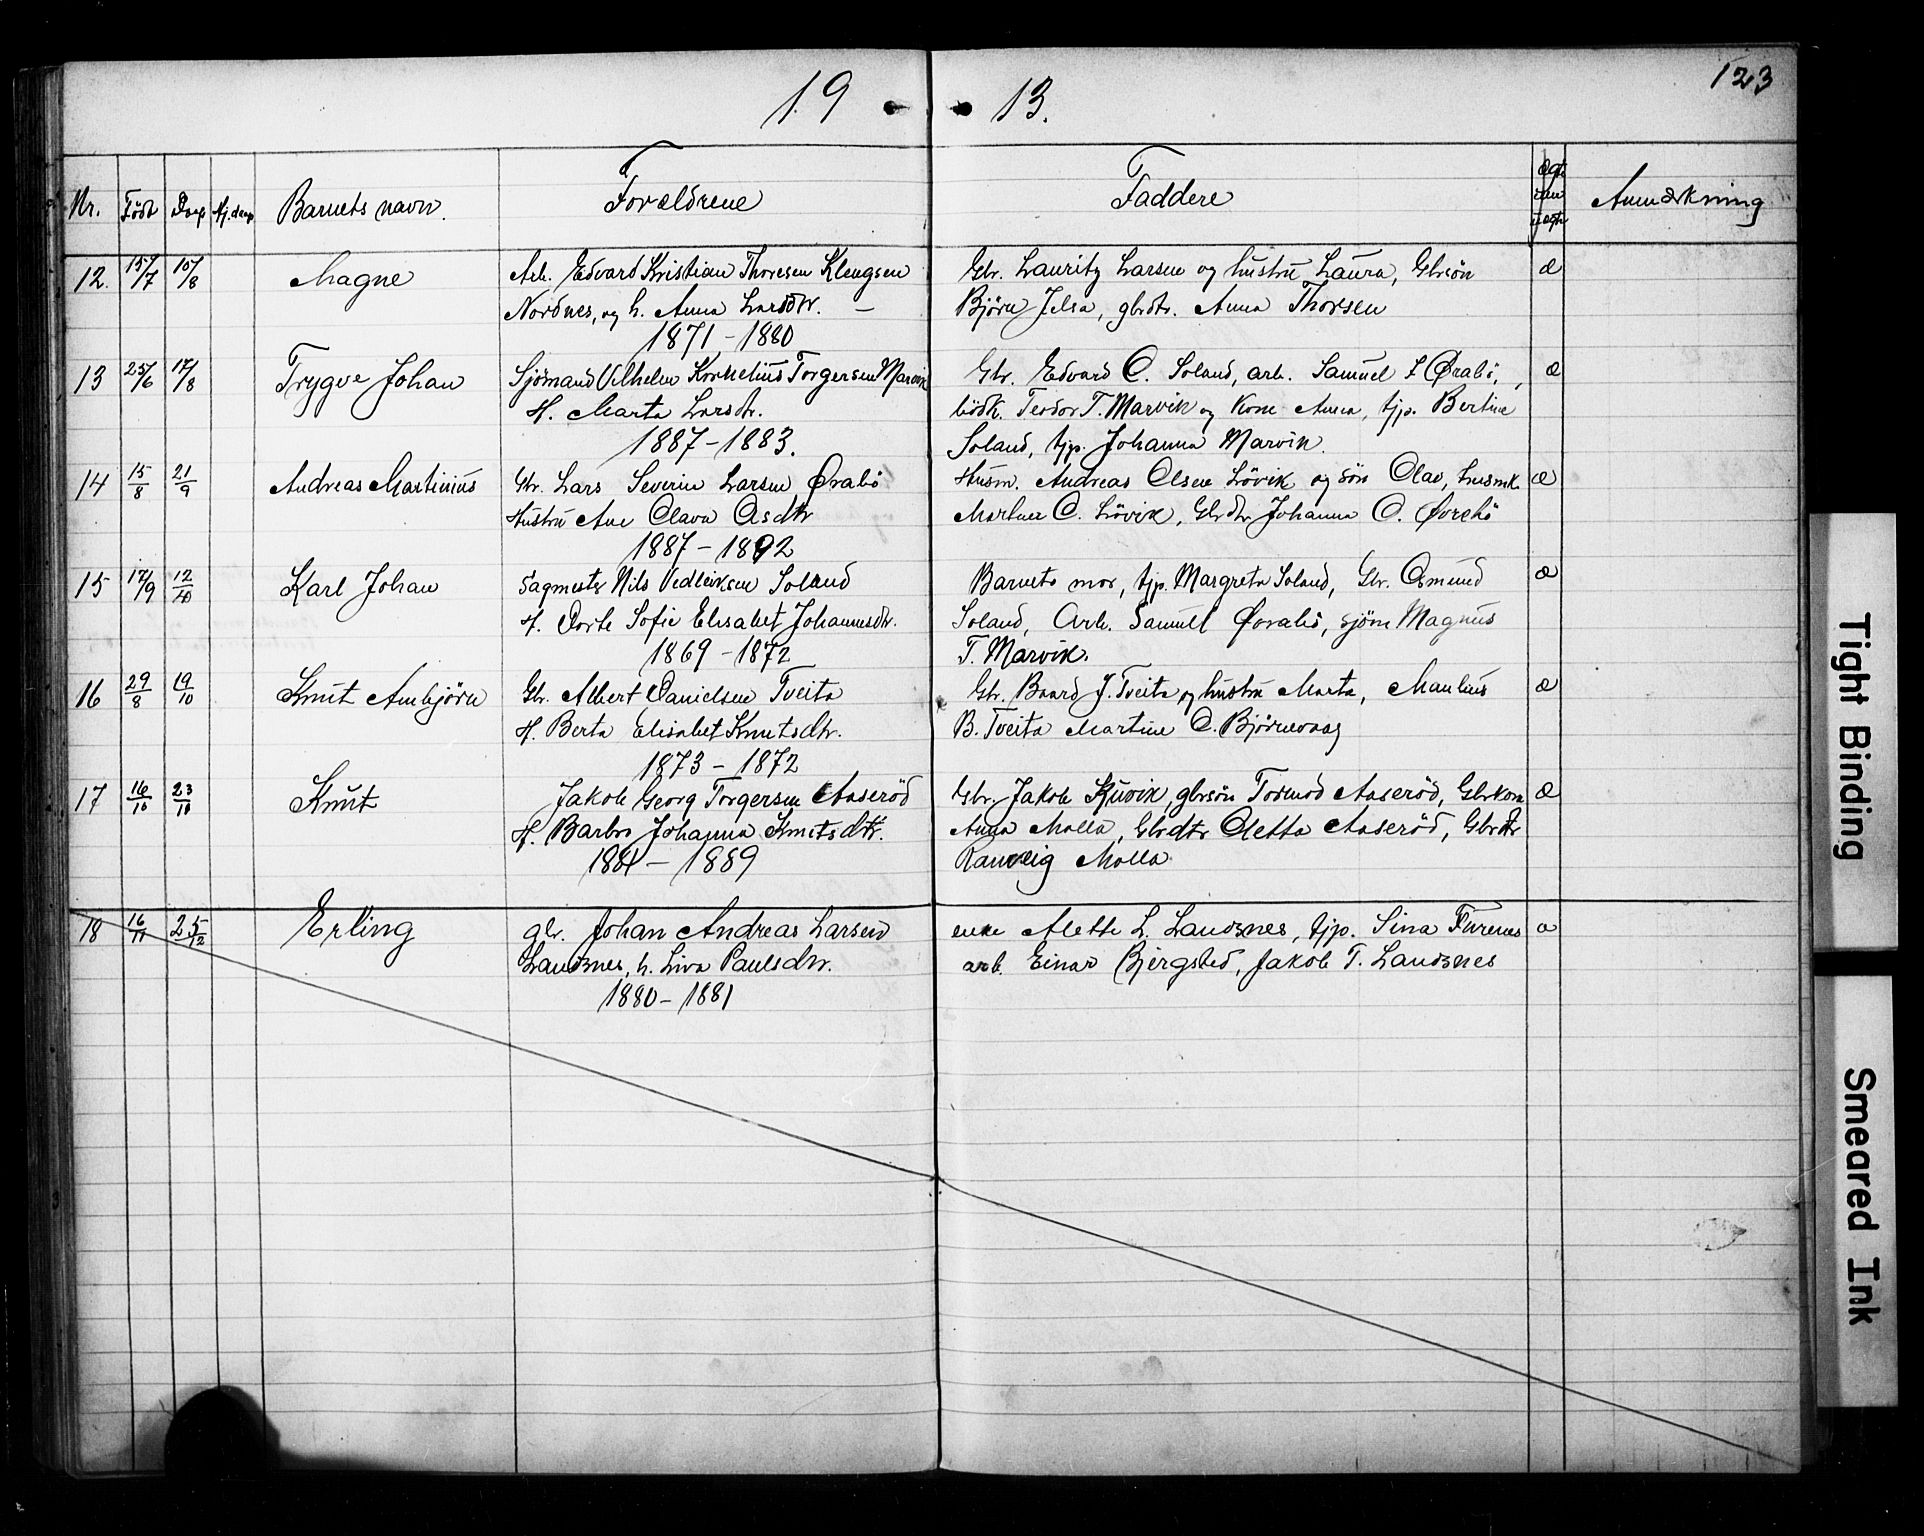 123
19 13.
Nr. Født Daap Hj.daap Barnets navn. Forældrene Faddere Ægte eller uægte Anmærkning
12. 15/7 10/8 Magne Arb. Edvard Kristian Thoresen Klengsen Gbr. Lauritz Larsen og hustru Laura, Gbrsön æ
Nordnes, og h. Anna Larsdtr. — Björn Jelsa, gbrdtr. Anna Thorsen
1871 - 1880
13 25/6 17/8 Trygve Johan Sjömand Vilhelm Kornelius Torgersen Marvik Gbr. Edvard O. Soland, arb. Samuel T Øvabö, æ
H. Marta Larsdtr. bödk. Teodor T. Marvik og Kone Anna, tjp. Bertine
1887 - 1883. Soland, tjp. Johanna Marvik.
14 15/8 21/9 Andreas Martinius Gbr. Lars Severin Larsen Øvabö Husm. Andreas Olsen Lövik og sön Olav, husmk. æ
Hustru Ane Olava Osdtr O. Lövik, Gbrdtr Johanna O. Øvebö
1887 - 1892
15 17/9 12/10 Karl Johan Sagmester Nils Vedleiksen Soland Barnets mor, tjp. Margreta Soland, Gbr. Osmund æ
H. Dorte Sofie Elisabet Johannesdtr. Soland, Arb. Samuel Øvabö, sjöm Magnus
1869 - 1872 T. Marvik.
16 29/8 19/10 Knut Ambjörn Gbr. Albert Danielsen Tveita Gbr. Baard J. Tveita og hustru Marta, Maulius æ
H. Berta Elisabet Knutsdtr. B. Tveita Martine O. Björnevaag
1873 - 1872
17 16/10 23/10 Knut Jakob Georg Torgersen Aaseröd Gbr. Jakob Kjuvik, gbrsön Tormod Aaseröd, Gbrkone æ
H. Barbro Johanna Knutsdtr. Anna Molla, Gbrdtr Oletta Aaseröd, Gbrdtr
1881 - 1889 Ranveig Molla
18 16/11 25/12 Erling gbr. Johan Andreas Larsen enke Alette L. Landsnes, tjp. Sina Furenes æ
Landsnes, h. Liva Paulsdtr. arb. Einar Bjergsted, Jakob T. Landsnes
1880 - 1881
Tight Binding
Smeared Ink